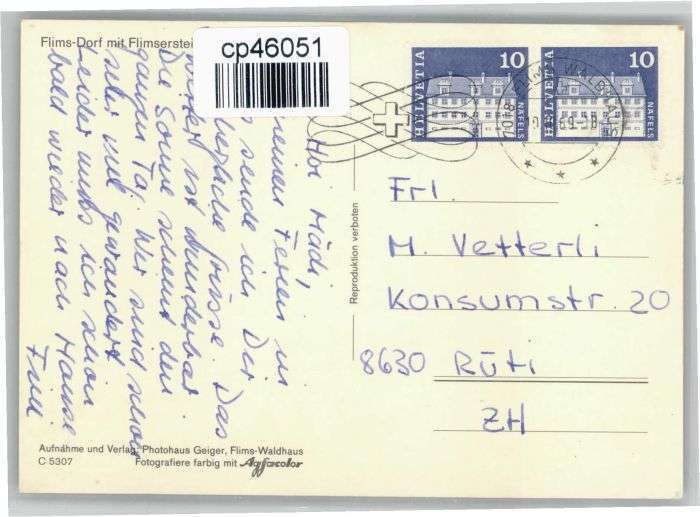 Flims-Dorf mit Flimserstei
cp46051
HELVETIA 10 NÄFELS
HELVETIA 10 NÄFELS
Hoi Mädi,
meinen Ferien in
sende ich Dir
herzliche Grüsse. Das
ist wunderbar
Die Sonne scheint den
ganzen Tag. Wir sind schon
sehr viel gewandert
Leider muss ich schon
bald wieder nach Hause
Reproduktion verboten
Frl.
M. Vetterli
Konsumstr. 20
8630 Rüti
ZH
Aufnahme und Verlag: Photohaus Geiger, Flims-Waldhaus
C 5307 Fotografiere farbig mit Agfacolor